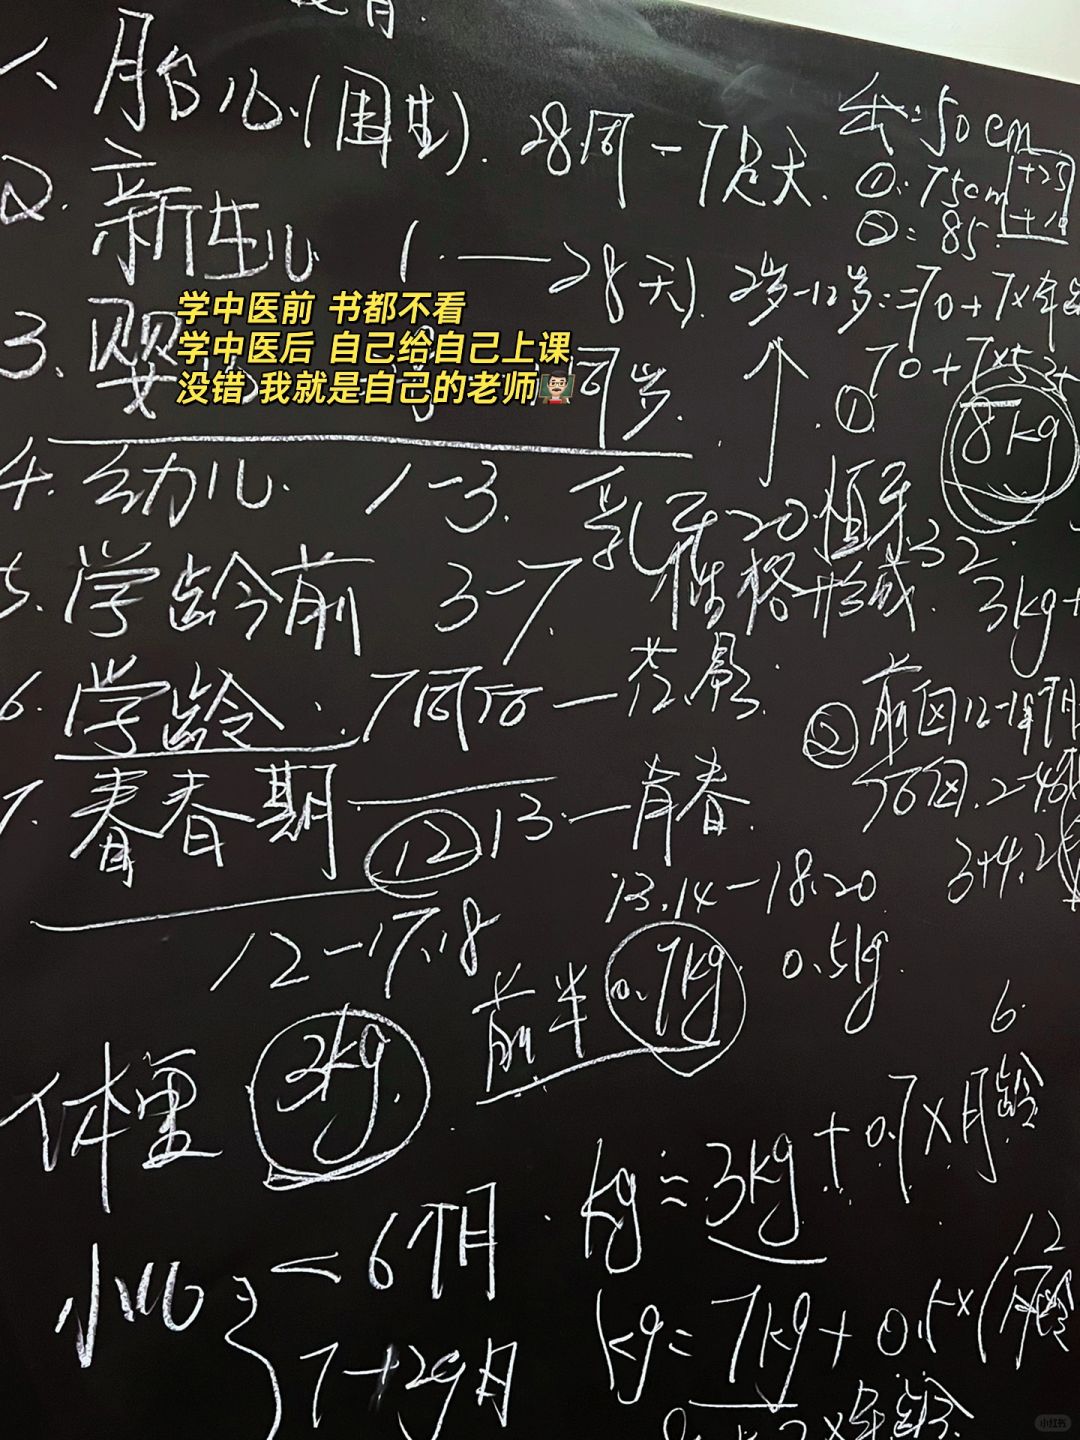 1、胎儿(围生). 28周-7足天.
出:50cm
①:75cm +25
②:85. +10
2. 新生儿 1.——28天)
2岁-12岁:=70+7×年龄
70+7×5=
3. 婴 周岁.
个 ①
8kg
学中医前 书都不看
学中医后 自己给自己上课
没错 我就是自己的老师👨🏻‍🏫
4. 幼儿. 1-3.
乳牙20.恒牙32.
5. 学龄前 3-7.
性格形成.
3kg+
6. 学龄. 7周后—
② 前囟12-18月
后囟.2-4
3+4.2
7. 青春期 ⑫ 13.—青春.
13.14-18.20
12-17.18
前半 0.7kg 0.5kg.
体重 3kg.
6
kg=3kg+0.7×月龄
小儿 <6个月.
12
kg=7kg+0.5×(月龄
7-12个月
×年龄
小红书